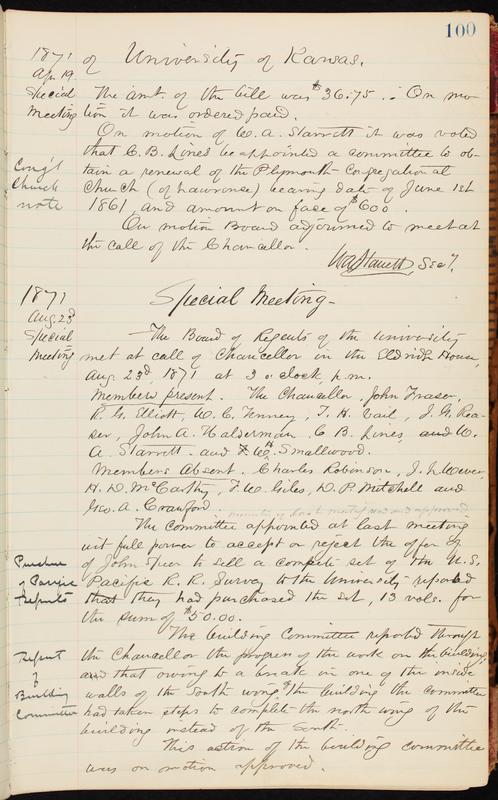 100
1871 of University of Kansas.
Apr 19
Special The amt. of the bill was $36.75 ∴ On mo-
Meeting tion it was ordered paid.
On motion of W. A. Starrett it was voted
that C. B. Lines be appointed a committee to ob-
Cong'l tain a renewal of the Plymouth Congregational
Church Church (of Lawrence) bearing date of June 1st
note 1861, and amount on face of $600.
On motion Board adjourned to meet at
the call of the Chancellor.
W A Starrett Sec'y.
1871 Special Meeting-
Aug. 23d
Special The Board of Regents of the University
Meeting met at call of Chancellor in the Eldridge House,
Aug 23d, 1871 at 3 o'clock, p.m.
Members present. The Chancellor, John Fraser,
R. G. Elliott, W. C. Tenney, T. H. Vail, J. G. Rea-
ser, John A. Halderman, C. B. Lines, and W.
A. Starrett and W. H. Smallwood.
Members Absent. Charles Robinson, J. L. Wever,
H. D. McCarthy, F. W. Giles, D. P. Mitchell and
Geo. A. Crawford. minutes of last meeting read and approved
The Committee appointed at last meeting
wit full power to accept or reject the offer of
Purchase of John Speer to sell a complete set of the U.S.
of Pacific Pacific R. R. Survey to the University reported
Reports that they had purchased the set, 13 vols. for
the sum of $50.00.
The building Committee reported through
Report the Chancellor the progress of the work on the building,
of and that owing to a break in one of the inside
Building walls of the South wing of the building the committee
Committee had taken steps to complete the north wing of the
building instead of the South.
This action of the building committee
was on motion approved.